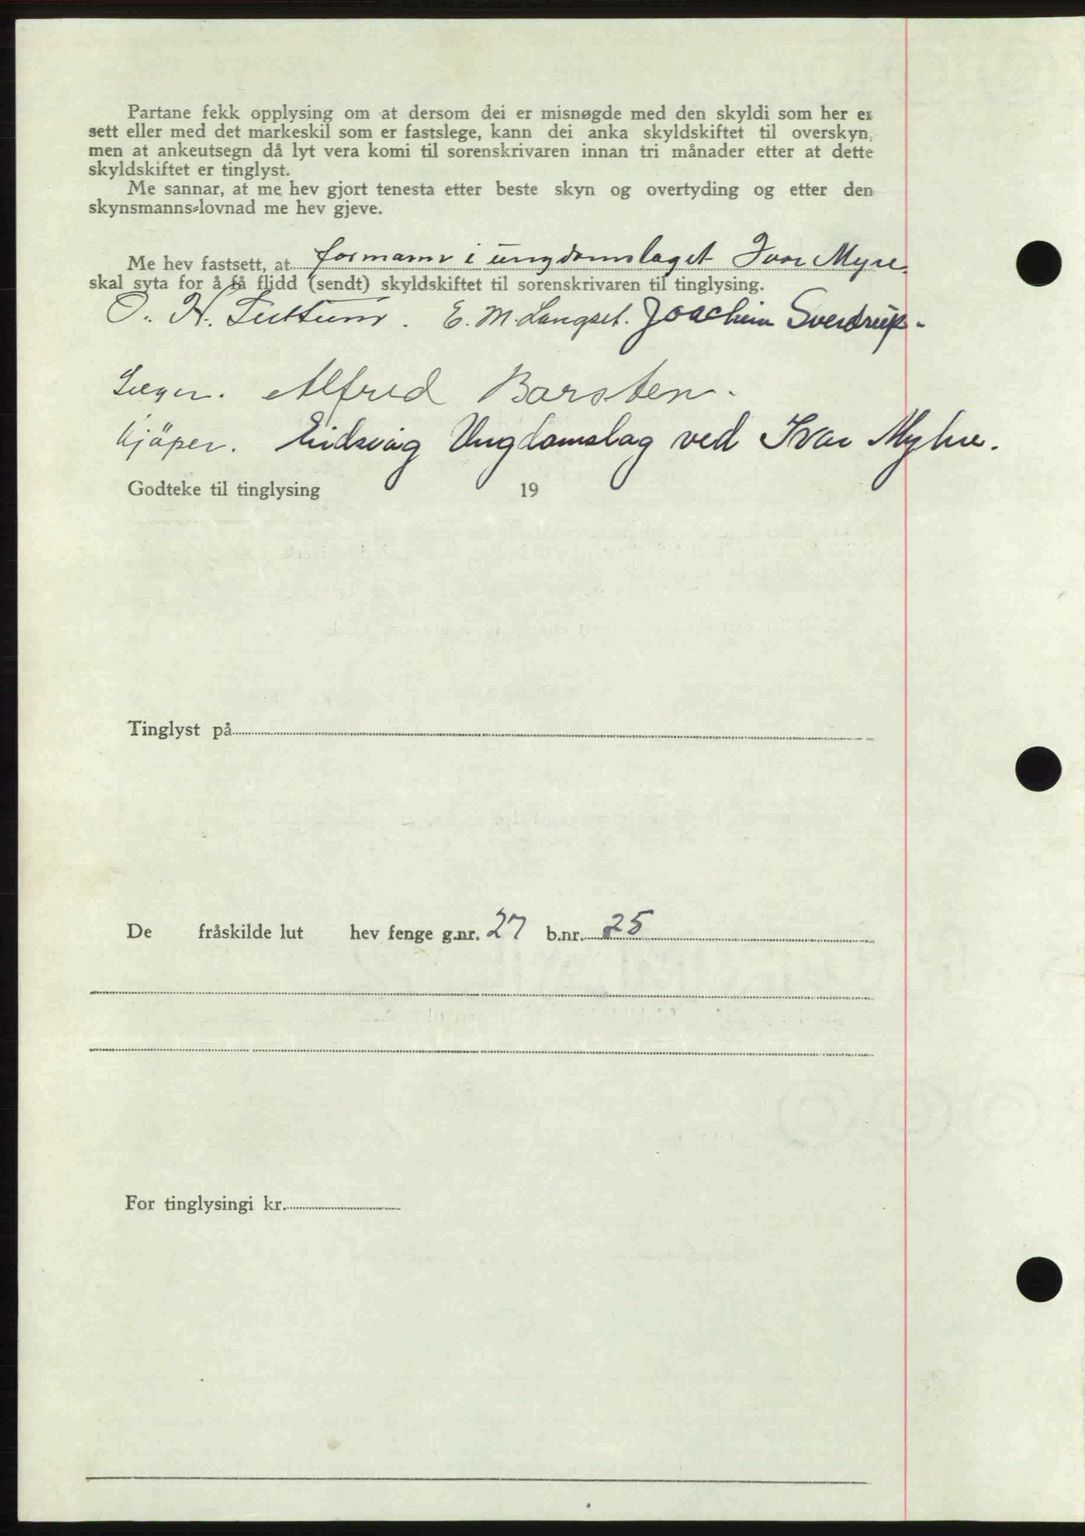 Partane fekk opplysing om at dersom dei er misnøgde med den skyldi som her er
sett eller med det markeskil som er fastslege, kann dei anka skyldskiftet til overskyn,
men at ankeutsegn då lyt vera komi til sorenskrivaren innan tri månader etter at dette
skyldskiftet er tinglyst.
Me sannar, at me hev gjort tenesta etter beste skyn og overtyding og etter den
skynsmanns-lovnad me hev gjeve.
Me hev fastsett, at formann i ungdomslaget Ivar Myre
skal syta for å få flidd (sendt) skyldskiftet til sorenskrivaren til tinglysing.
O. H. E. M. Langset. Joachim Sverdrup.
Alfred Barsten.
Kjöper. Eidsvåg Ungdomslag ved Ivar Myhre.
Godteke til tinglysing 19
Tinglyst på
De fråskilde lut hev fenge g.nr. 27 b.nr. 25
For tinglysingi kr.